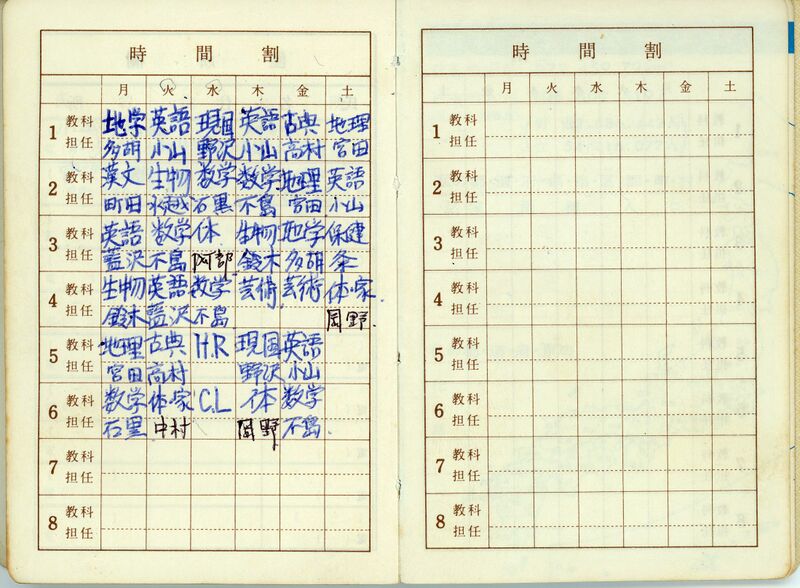 時間割
月 火 水 木 金 土
1 教科 地学 英語 現国 英語 古典 地理
担任 多胡 小山 野沢 小山 高村 宮田
2 教科 英文 生物 数学 数学 地理 英語
担任 町田 水越 石黒 不島 宮田 小山
3 教科 英語 数学 体 生物 地学 保健
担任 藍沢 不島 阿部 鈴木 多胡 条
4 教科 生物 英語 数学 芸術 芸術 体・家
担任 鈴木 藍沢 不島 岡野
5 教科 地理 古典 H.R 現国 英語
担任 宮田 高村 野沢 小山
6 教科 数学 体・家 C.L 体 数学
担任 石黒 中村 岡野 不島
7 教科
担任
8 教科
担任
時間割
月 火 水 木 金 土
1 教科
担任
2 教科
担任
3 教科
担任
4 教科
担任
5 教科
担任
6 教科
担任
7 教科
担任
8 教科
担任